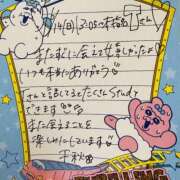 14(日) 2:05の本指名Tさん
またすぐに会えて嬉しかったよ
いつも本当にありがとう
さんと話してるとたくさんStudy
できます
また会えることを
楽しみにしています
千秋